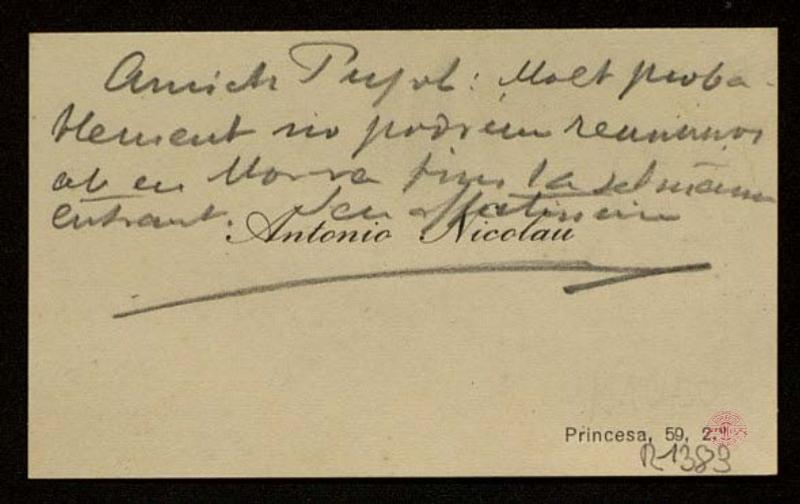 Amich Pujol: Molt proba-
blement no podrem reunirnos
ab en Morera fins la setmana
entrant. Seu afectissim
Antonio Nicolau
Princesa, 59, 2.º
R1383